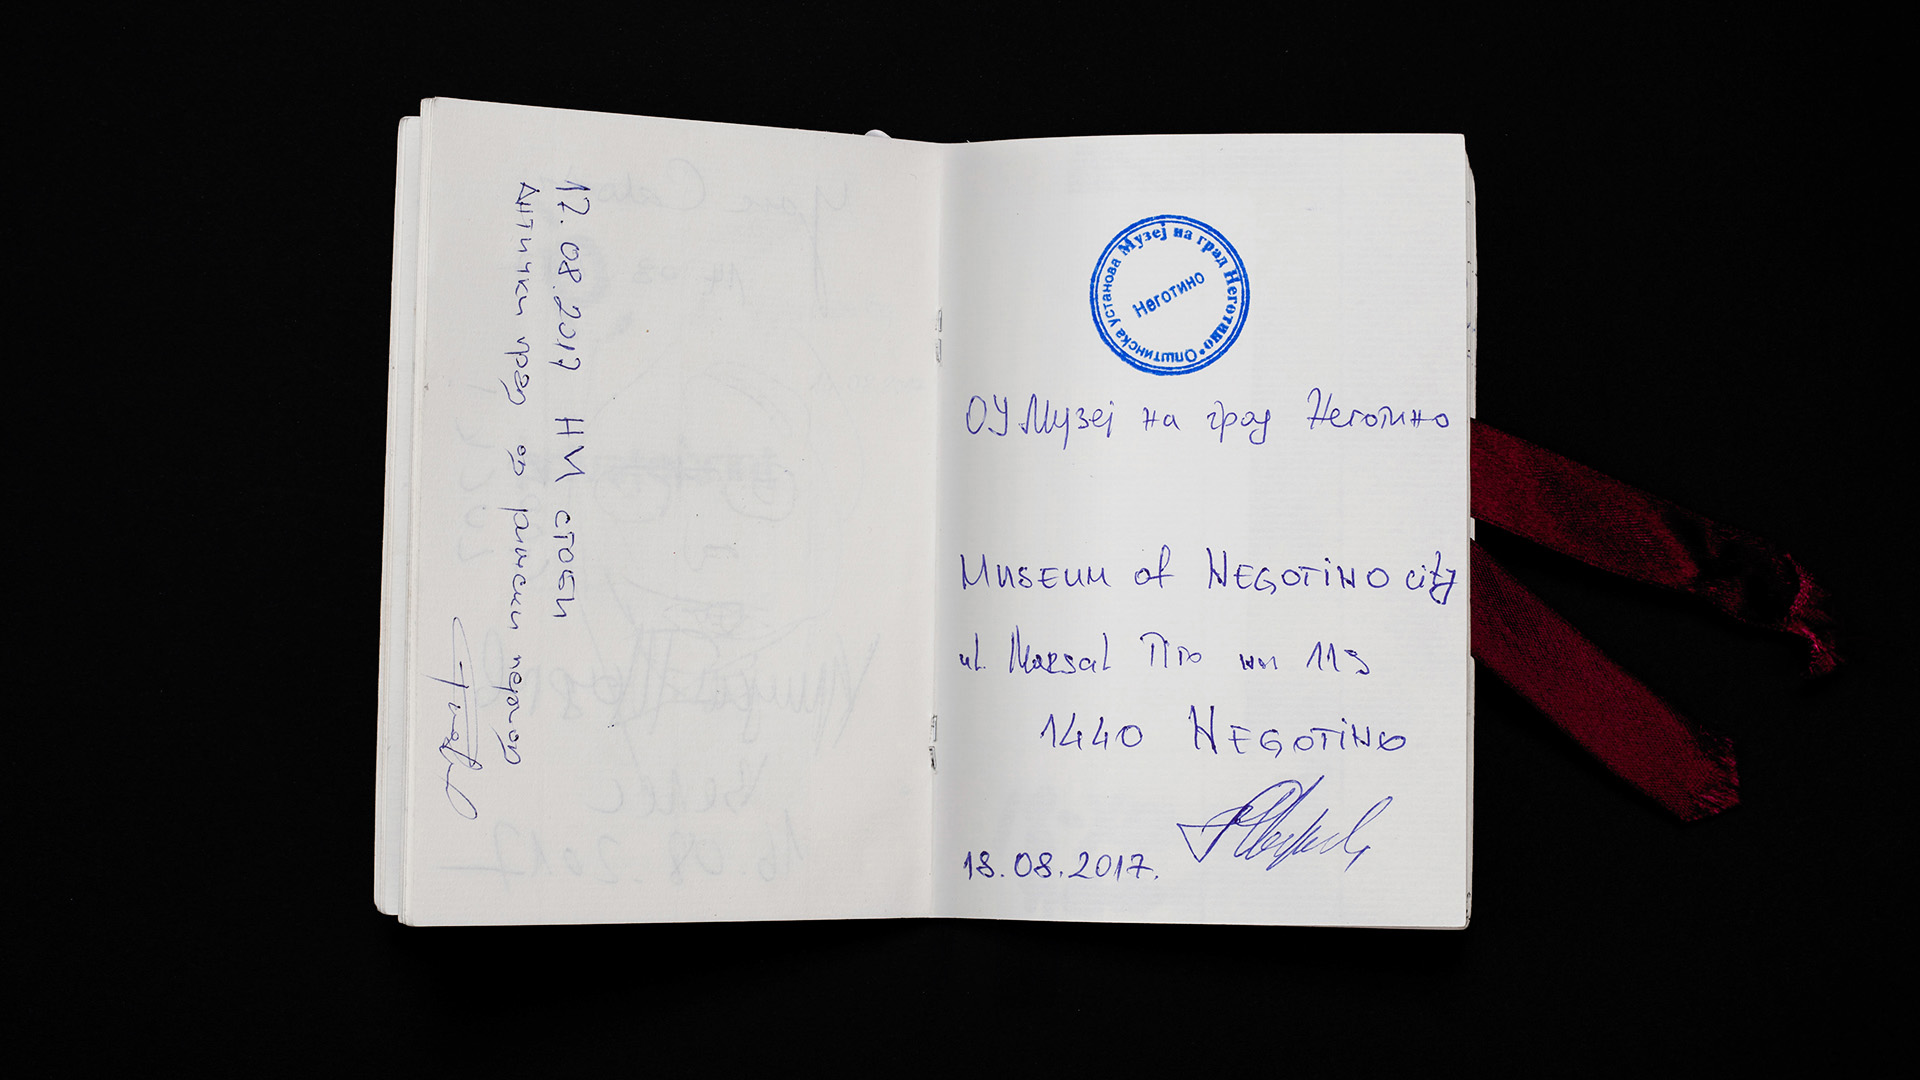 17.08.2017 НИ СТОБИ
Антички град од римски период
Општинска установа Музеј на град Неготино
Неготино
ОУ Музеј на град Неготино
MUSEUM of NEGOTINO city
ul. Marsal Tito
1440 NEGOTINO
18.08.2017.